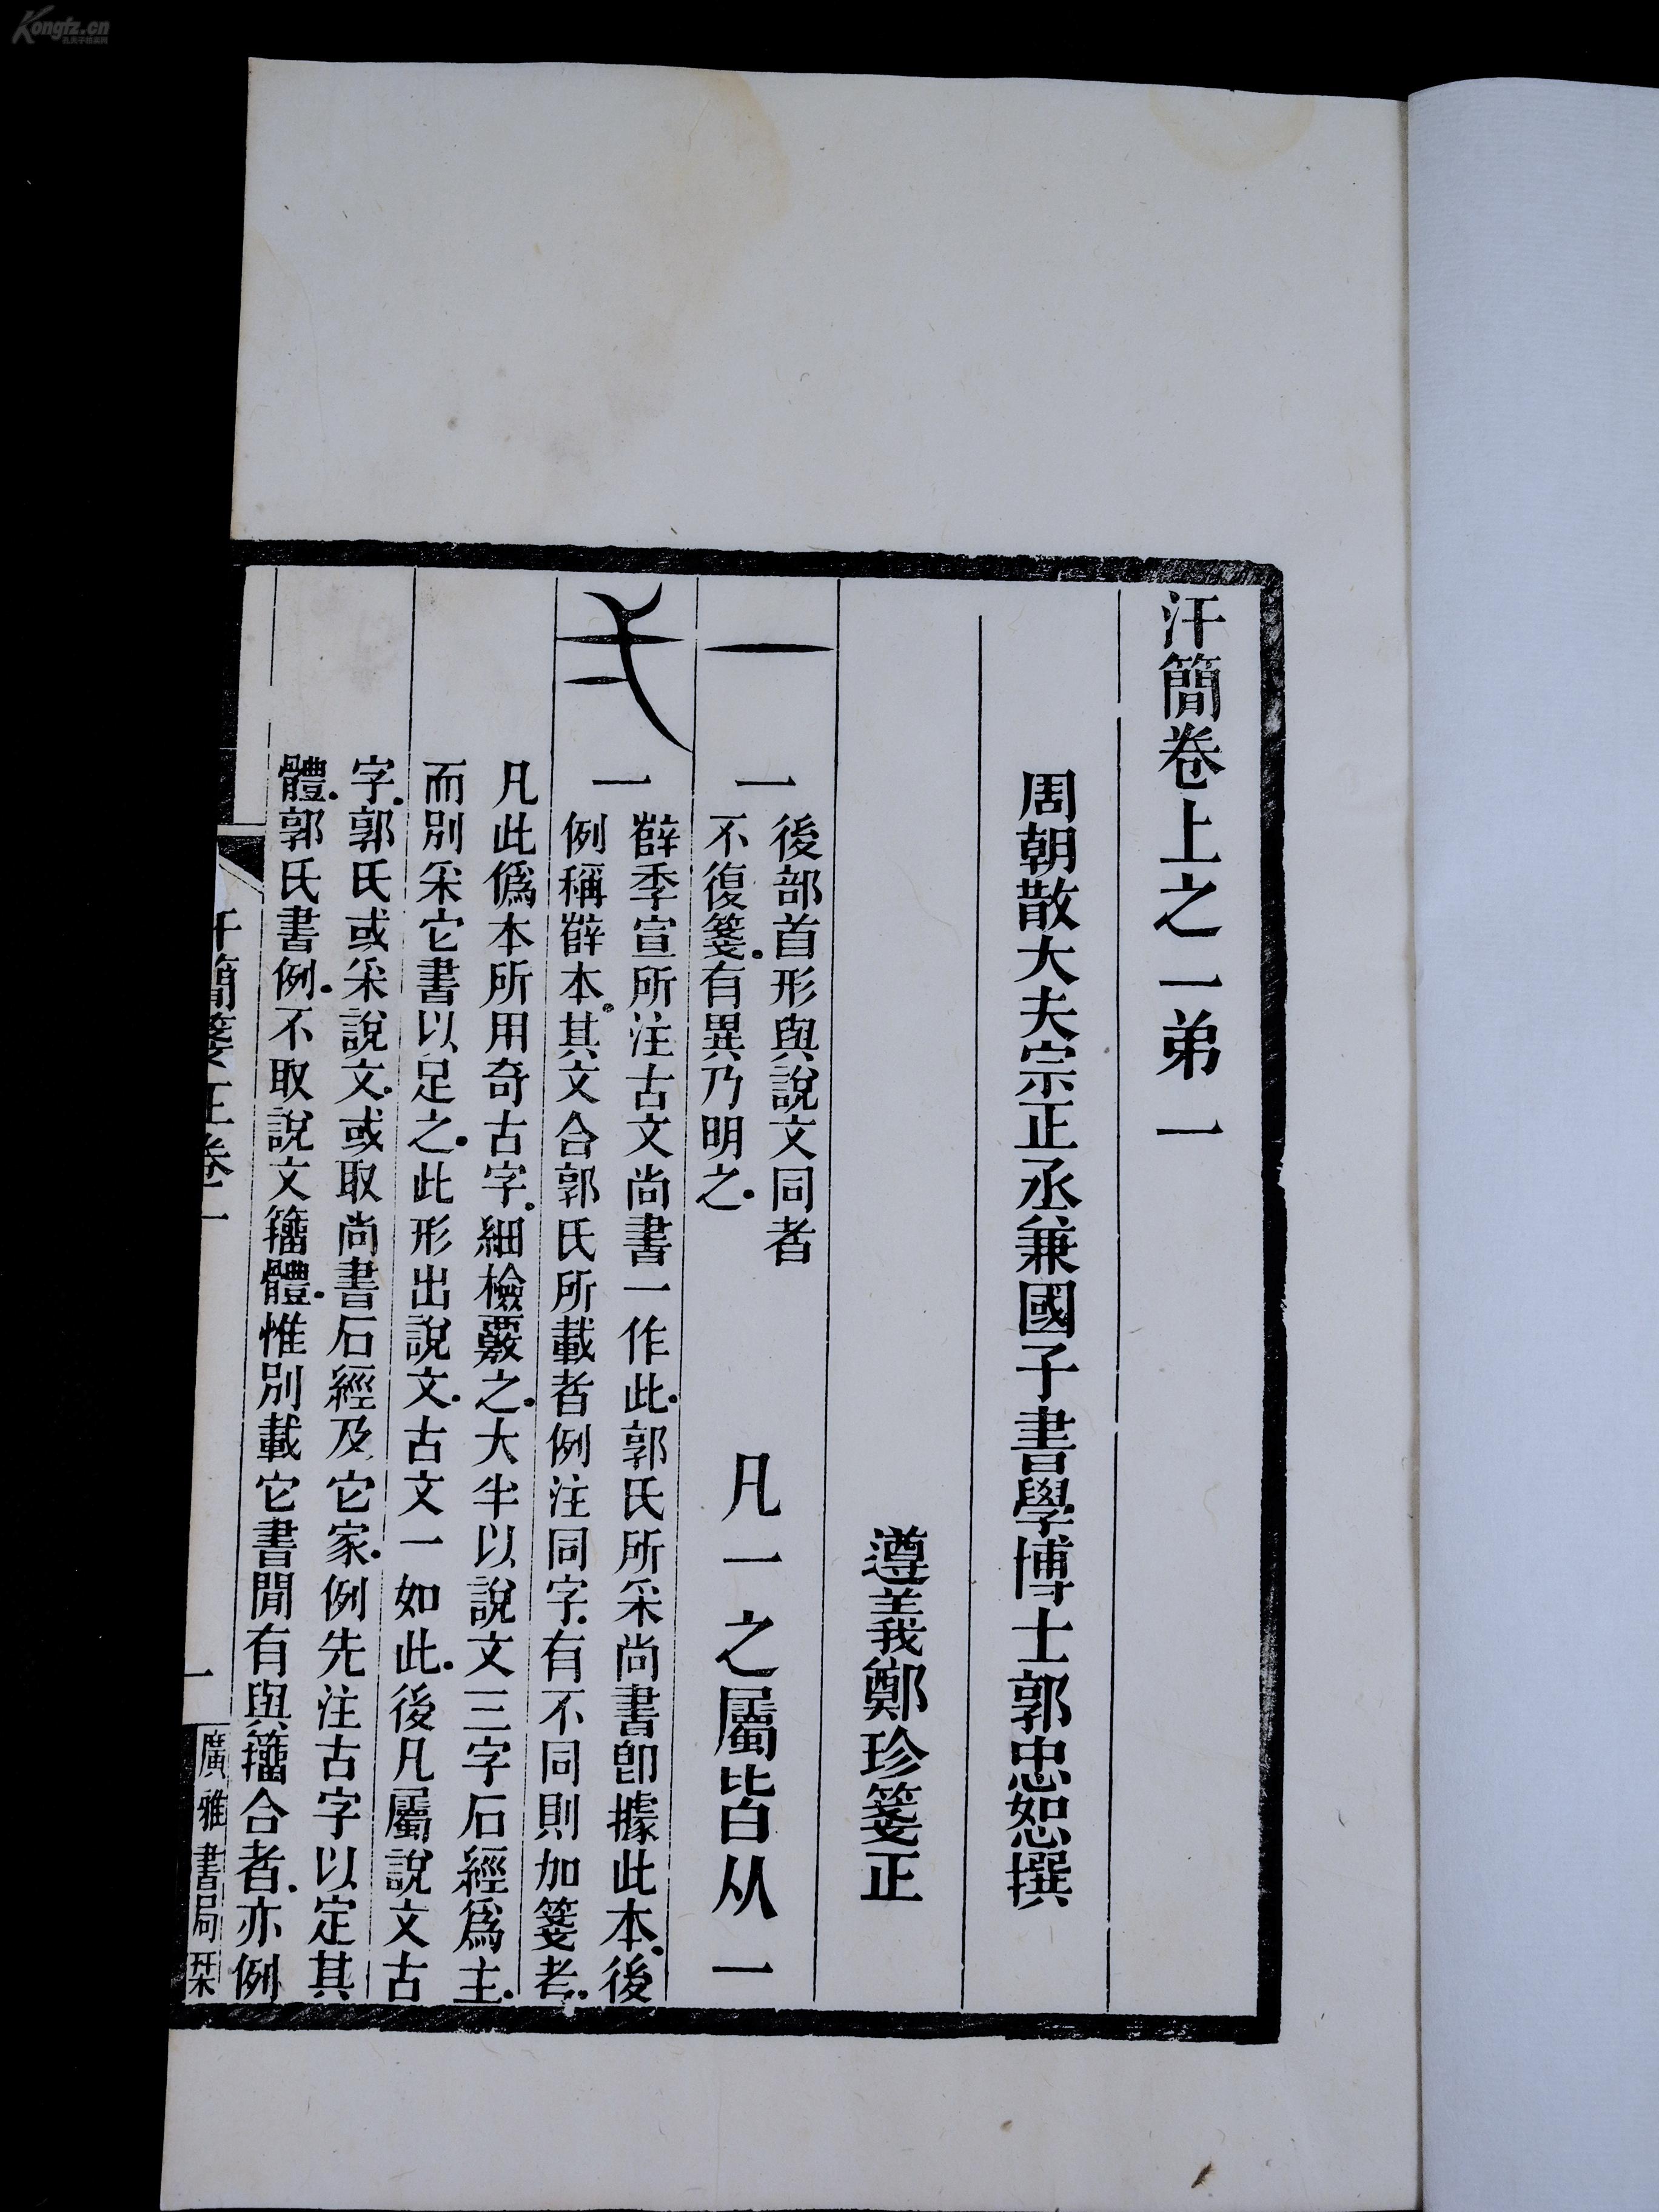 汗簡卷上之一弟一
周朝散大夫宗正丞兼國子書學博士郭忠恕撰
遵義鄭珍箋正
一
一
後部首形與說文同者
不復箋。有異乃明之。
凡一之屬皆从一
弌
一
薛季宣所注古文尚書一作此。郭氏所采尚書卽據此本。後
例稱薛本。其文合郭氏所載者例注同字。有不同則加箋考。
凡此僞本所用奇古字。細檢覈之。大半以說文三字石經爲主。
而別采它書以足之。此形出說文。古文一如此。後凡屬說文古
字。郭氏或采說文。或取尚書石經及它家。例先注古字以定其
體。郭氏書例。不取說文籒體。惟別載它書閒有與籒合者。亦例
汗簡箋正卷一
一
廣雅書局栞
Kongfz.cn